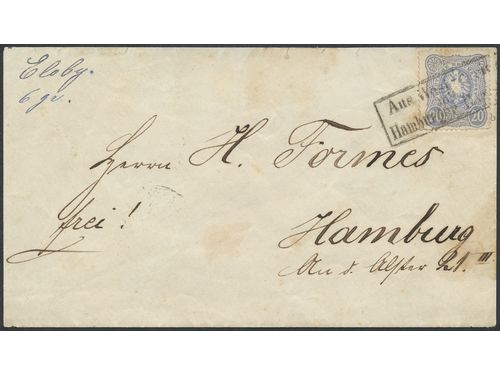 Eloby.
6 gr.
Aus
Hamburg
20
Herrn H. Formes
frei!
Hamburg
An d. Alster 21 III